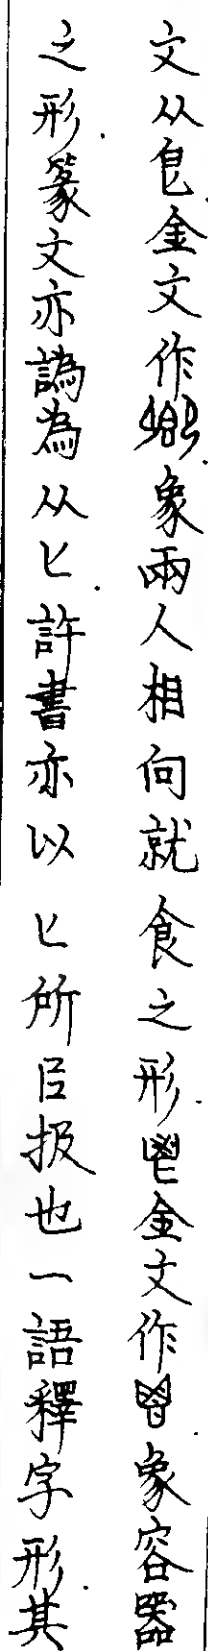 文从皀金文作象兩人相向就食之形鬯金文作象容器
之形篆文亦譌為从匕許書亦以匕所㠯扱也一語釋字形其